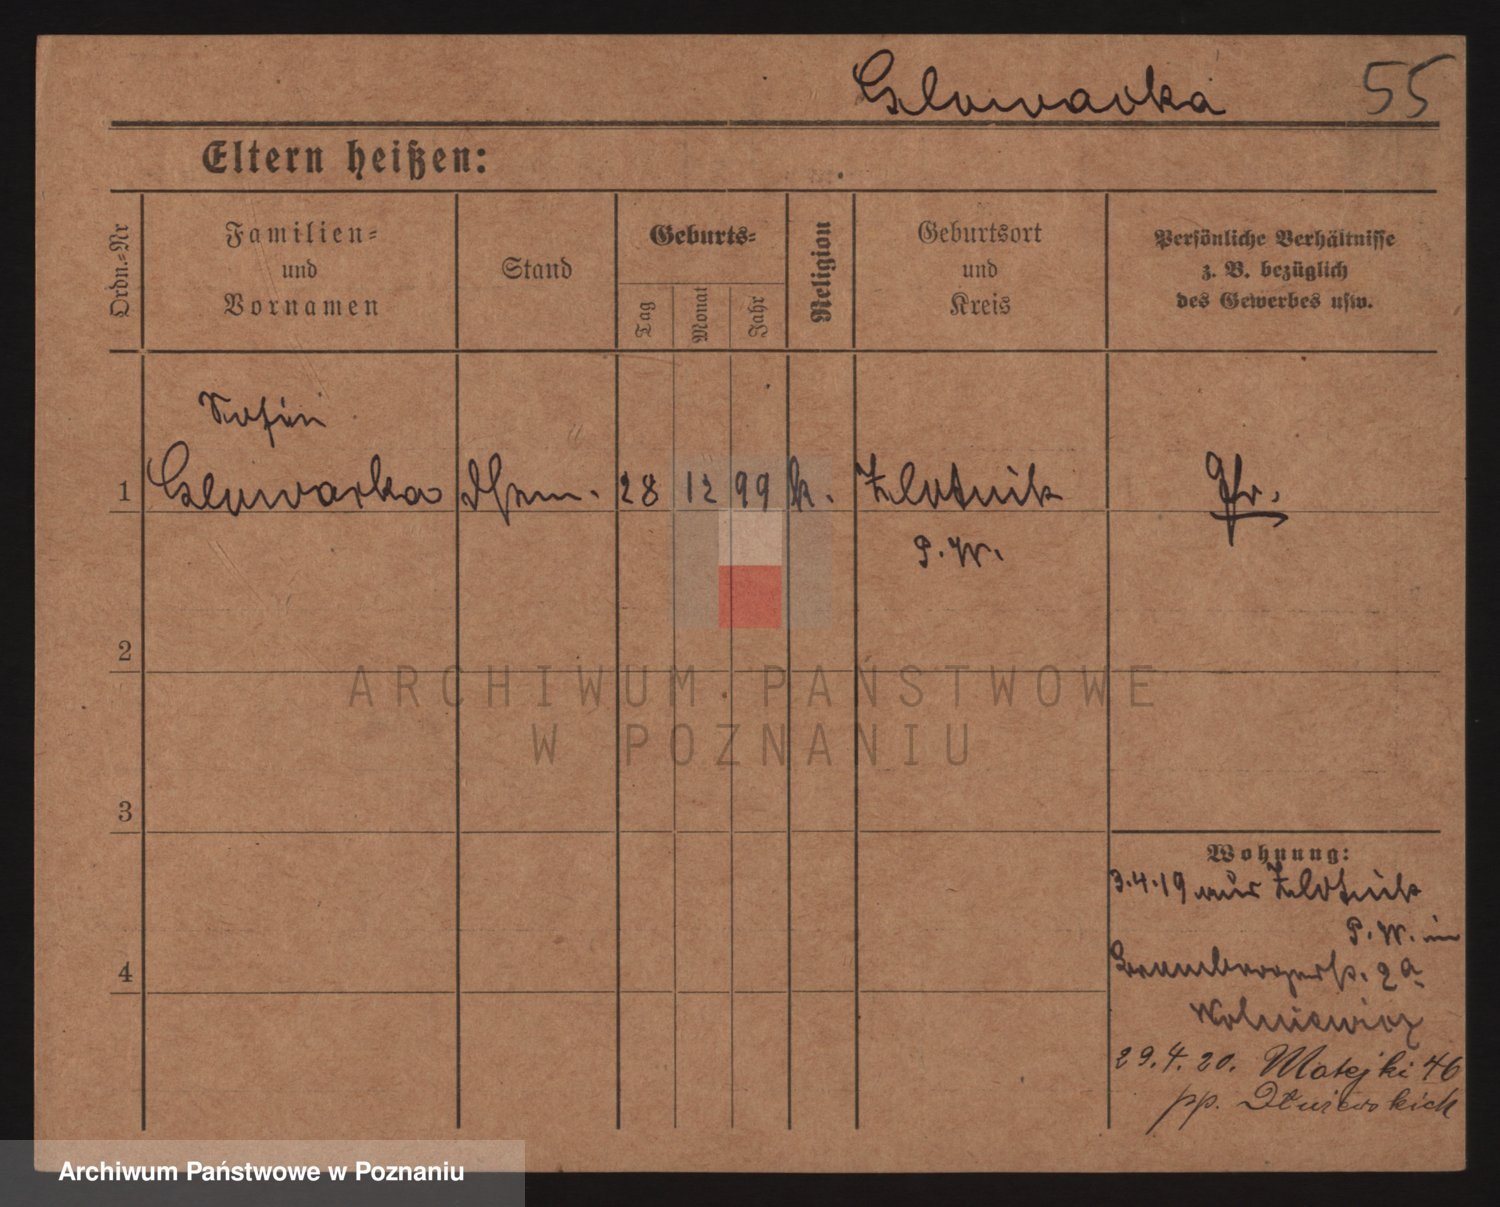 Glowacka 55
Eltern heißen:
Ordn.-Nr
Familien-
und
Vornamen
Stand
Geburts-
Tag
Monat
Jahr
Religion
Geburtsort
und
Kreis
Persönliche Verhältnisse
z. B. bezüglich
des Gewerbes usw.
Sofie
1 Glowacka 28 12 99 k. Zlotnik
P.W.
2
3
4
Wohnung:
3.4.19 aus Zlotnik
P.W. in
2a
Wolniewicz
29.4.20. Matejki 46
pp.
ARCHIWUM PAŃSTWOWE
W POZNANIU
Archiwum Państwowe w Poznaniu